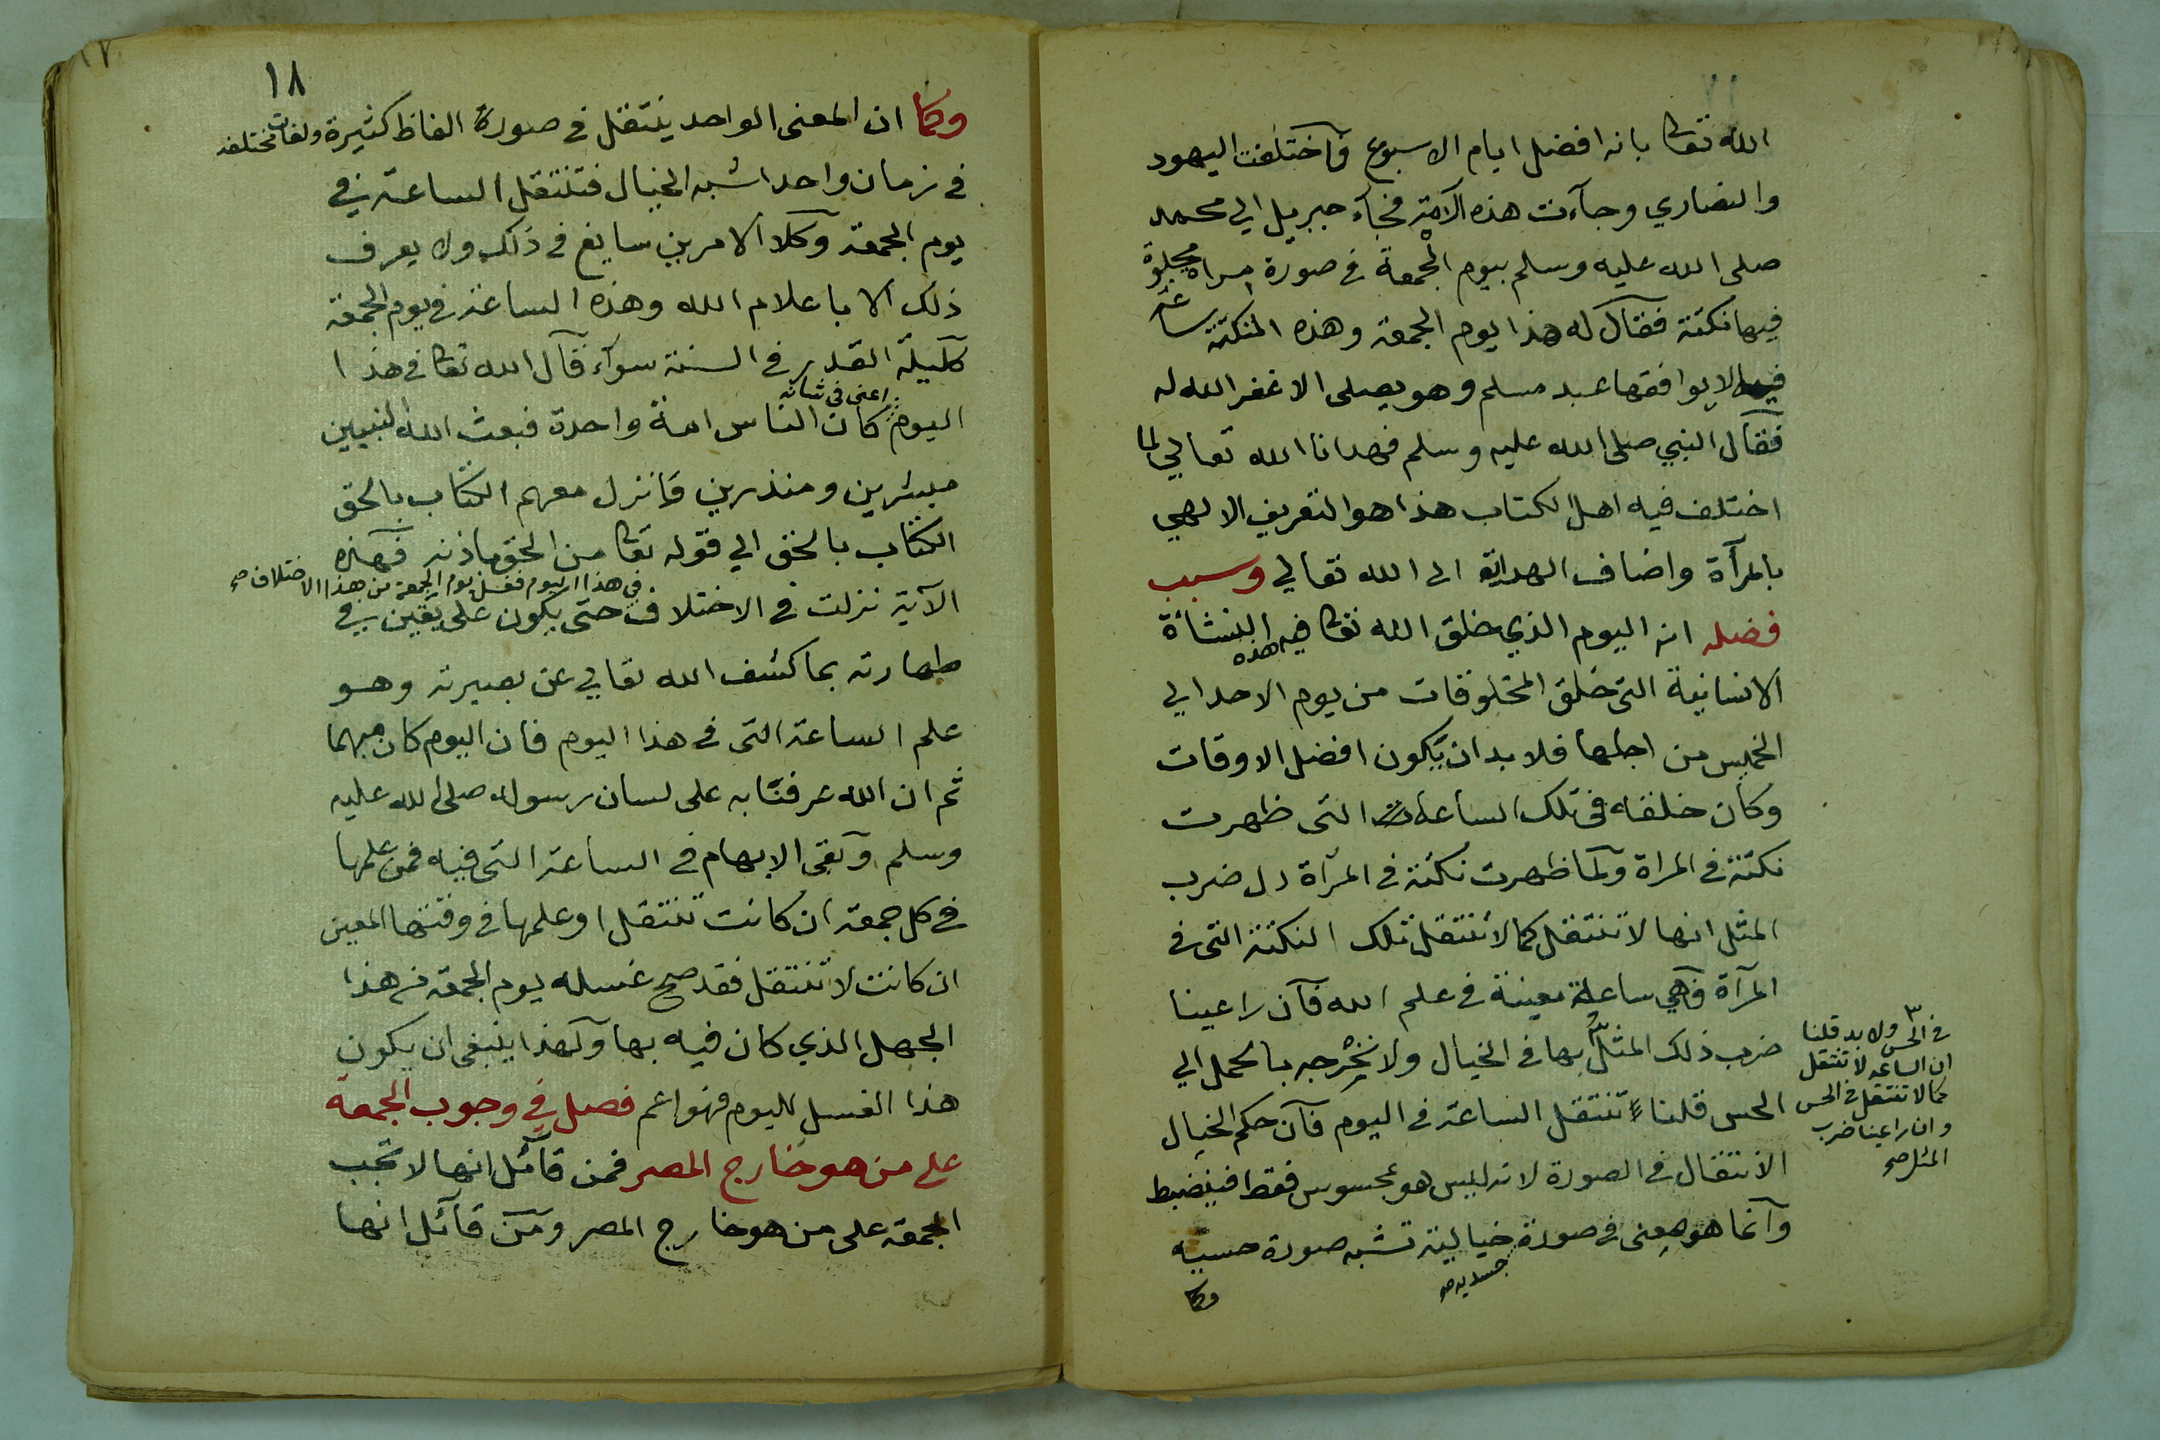 الله تعا بانه افضل ايام الاسبوع فاختلفت اليهود
والنصاري وجاءت هذه الآية فجاء جبريل الي محمد
صلى الله عليه وسلم بيوم الجمعة في صورة مراة مجلوة
فيها نكتة فقال له هذا يوم الجمعة وهذه النكتة ساعة
فيها لا يوافقها عبد مسلم وهو يصلى الا غفر الله له
فقال النبي صلى الله عليه وسلم فهدانا الله تعالي لما
اختلف فيه اهل الكتاب هذا هو التعريف الالهي
بالمرآة واضاف الهداية الى الله تعالي وسبب
فضله انه اليوم الذي خلق الله تعا فيه هذه النشأة
الانسانية التى خلق المخلوقات من يوم الاحد الي
الخميس من اجلها فلا بد ان يكون افضل الاوقات
وكان خلقه في تلك الساعة التى ظهرت
نكتة في المراة ولما ظهرت نكتة في المرآة دل ضرب
المثل انها لا تنتقل كما لا تنتقل تلك النكتة التى في
المرآة فهي ساعة معينة في علم الله فان راعينا
ضرب ذلك المثل بها في الخيال ولا نخرجه بالحمل الي
الحس قلنا تنتقل الساعة في اليوم فان حكم الخيال
الانتقال في الصورة لانه ليس هو بمحسوس فقط فينضبط
وانما هو معنى في صورة خيالية تشبه صورة حسية
جسديه صح
وكما
في الحس ولا بد قلنا
ان الساعة لا تنتقل
كما لا تنتقل في الحس
وان راعينا ضرب
المثل صح
١٨
وكما ان المعنى الواحد ينتقل في صورة الفاظ كثيرة ولغات مختلفه
في زمان واحد اشبه الخيال فتنتقل الساعة في
يوم الجمعة وكلا الامرين سايغ في ذلك ولا يعرف
ذلك الا باعلام الله وهذه الساعة في يوم الجمعة
كليلة القدر في السنة سوآء قال الله تعا في هذا
اليوم اعنى في شانه كان الناس امة واحدة فبعث الله النبيين
مبشرين ومنذرين وانزل معهم الكتاب بالحق
الكتاب بالحق الي قوله تعا من الحق باذنه فهذه
في هذا اليوم فغسل يوم الجمعة من هذا الاختلاف صح
الآية نزلت في الاختلاف حتى يكون على يقين في
طهارته بما كشف الله تعالي عن بصيرته وهو
علم الساعة التى في هذا اليوم فان اليوم كان مبهما
ثم ان الله عرفنا به على لسان رسوله صلى الله عليه
وسلم وبقى الابهام في الساعة التى فيه فمن علمها
في كل جمعة ان كانت تنتقل او علمها في وقتها المعين
ان كانت لا تنتقل فقد صح غسله يوم الجمعة من هذا
الجهل الذي كان فيه بها ولهذا ينبغى ان يكون
هذا الغسل لليوم فهو اعم فصل في وجوب الجمعة
على من هو خارج المصر فمن قآئل انها لا تجب
الجمعة على من هو خارج المصر ومن قآئل انها